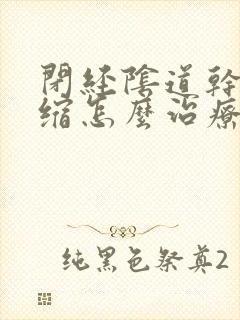 閉經陰道幹
縮怎麼治療
純黑色祭奠2